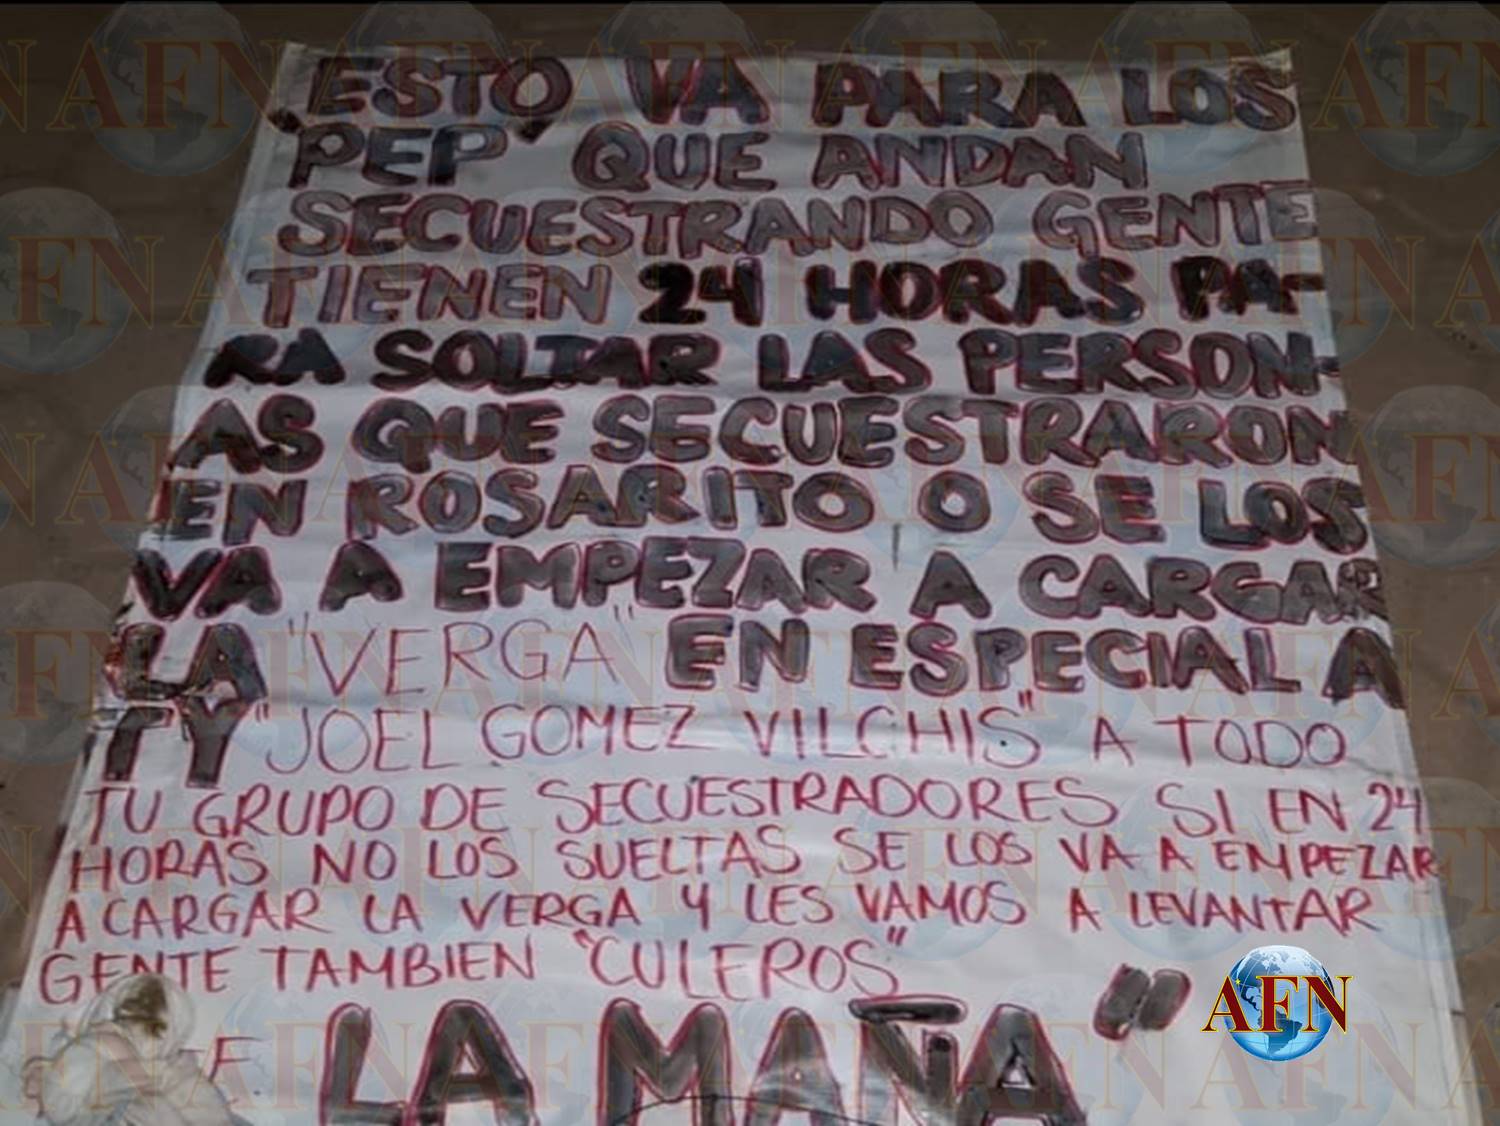 "ESTO VA PARA LOS
"PEP" QUE ANDAN
SECUESTRANDO GENTE
TIENEN 24 HORAS PA-
RA SOLTAR LAS PERSON-
AS QUE SECUESTRARON
EN ROSARITO O SE LOS
VA A EMPEZAR A CARGAR
LA "VERGA" EN ESPECIAL A
TY "JOEL GOMEZ VILCHIS" A TODO
TU GRUPO DE SECUESTRADORES SI EN 24
HORAS NO LOS SUELTAS SE LOS VA A EMPEZAR
A CARGAR LA VERGA Y LES VAMOS A LEVANTAR
GENTE TAMBIEN "CULEROS"
LA MAÑA"
AFN